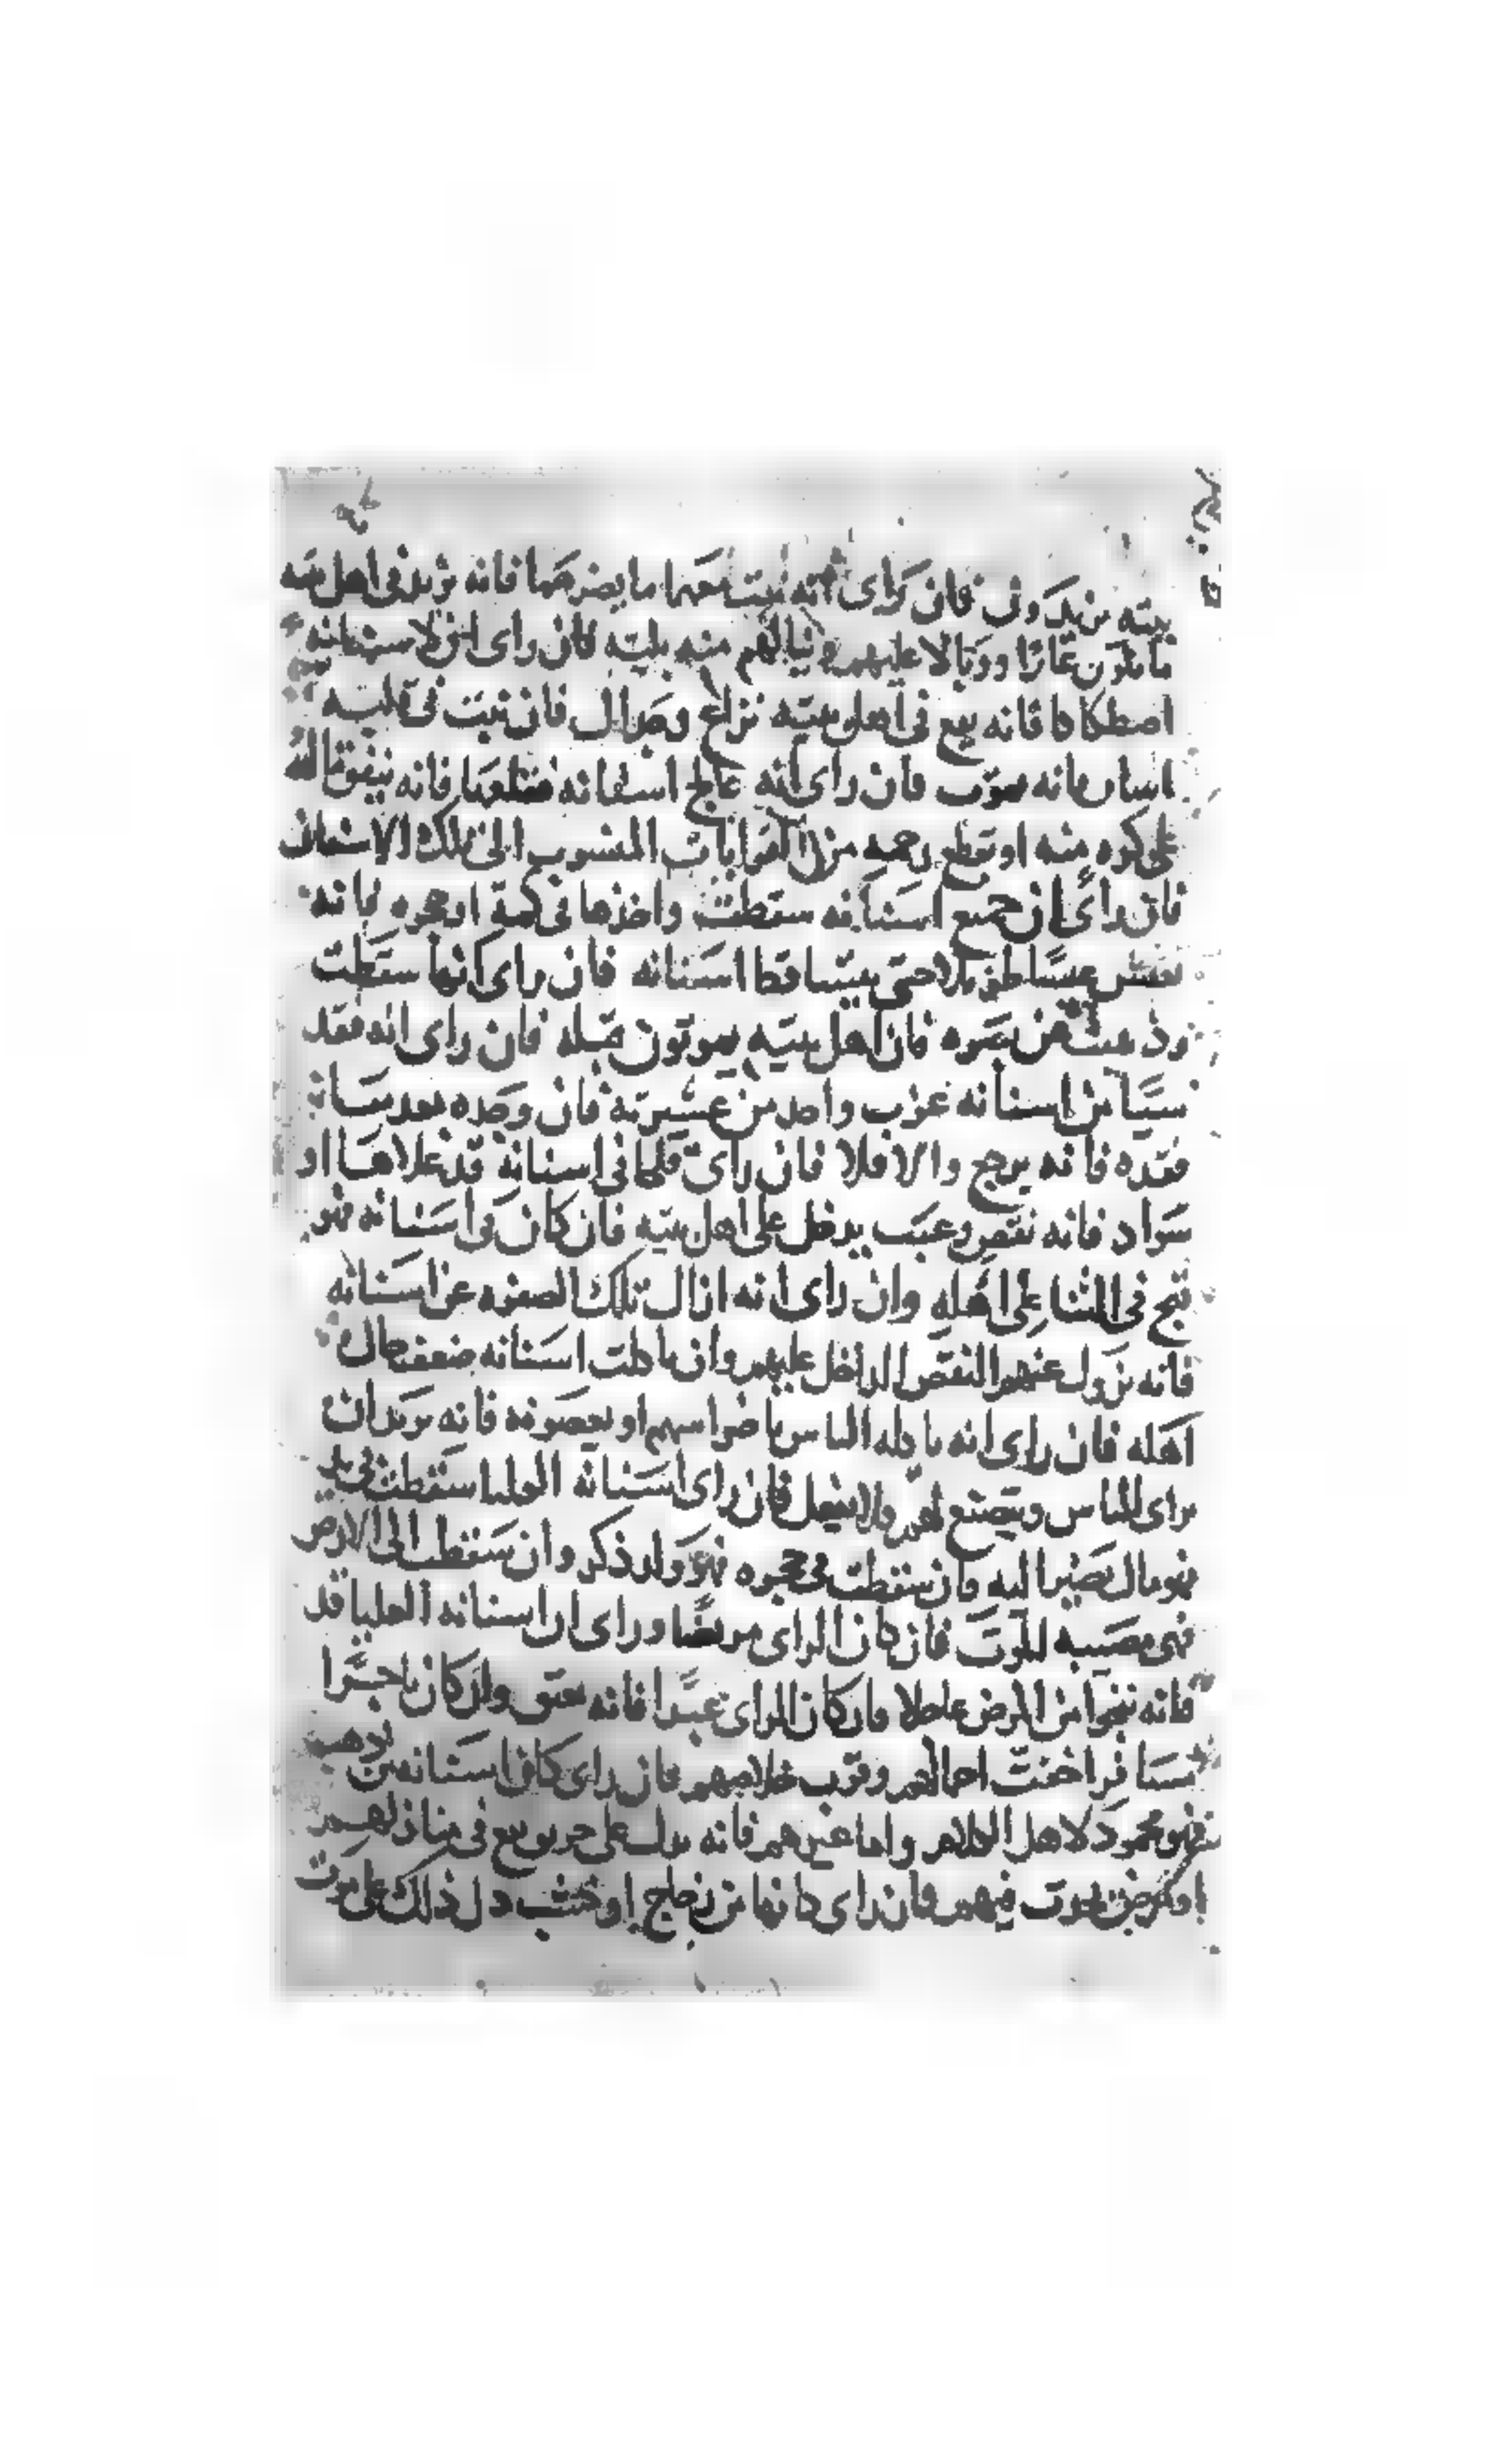 بيته من يدوفى فان راى انه نبت معها ما يضرهما فانه يزيد فى اهل بيته
ما يكون عارا ووبالا عليهم وينالهم منه بلية فان راى ان لاسنانه
اصطكاكا فانه يقع فى اهل بيته نزاع وجدال فان نبت فى قلبه
اسنان فانه يموت فان راى انه عالج اسنانه فقلعها فانه ينفق ماله
على كره منه او يقطع رحمه من القرابات المنسوب الى تلك الاسنان
فان راى ان جميع اسنانه سقطت واخذها فى كمه او حجره فانه
يعيش عيشا طويلا حتى يتساقط اسنانه فان راى كانها سقطت
وذهبت عن بصره فان اهل بيته يموتون قبله فان راى انه فقد
شيئا من اسنانه غرب واحد من عشيرته فان وجده بعد ما
فقده فانه يرجع والا فلا فان راى قلحا فى اسنانه قد علاها او
سواد فانه نقص وعيب يدخل على اهل بيته فان كان فى اسنانه فهو
قبح فى الثنا على اهله وان راى انه ازال تلك الصفره عن اسنانه
فانه يزول عنهم النقص الداخل عليهم وان تاكلت اسنانه ضعف حال
اهله فان راى انه ياكله الناس باضراسهم او يعضونه فانه يريد ان
يراى للناس ويتصنع لهم ولا يفعل فان راى اسنانه العليا سقطت فى يد
فهو مال يصير اليه وان سقطت فى حجره فهو ولد ذكر وان سقطت الى الارض
فهى مصيبه الموت فان كان الراى مريضا وراى ان اسنانه العليا قد
فانه ينجوا من المرض عاجلا وان كان الراى عبدا فانه يعتق وان كان تاجرا
مسافرا خفت احمالهم وقرب خلاصهم فان راى كان اسنانه من ذهب
فهو محمود لاهل الكلام واما غيرهم فانه يدل على حريق يقع فى منازلهم
او مرض يموت فيهم فان راى كانها من زجاج او خشب دل ذلك على موت